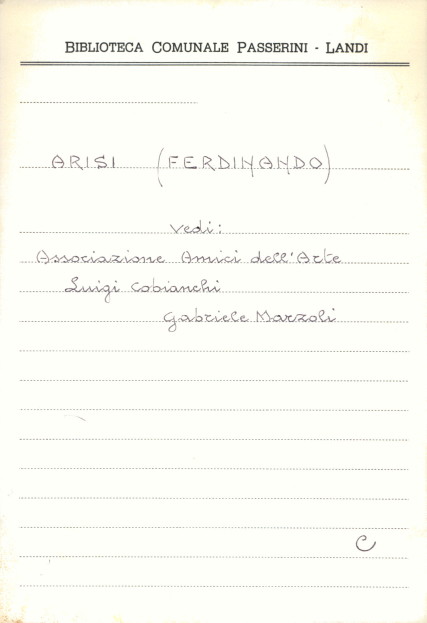 BIBLIOTECA COMUNALE PASSERINI - LANDI
ARISI (FERDINANDO)
Vedi:
Associazione Amici dell'Arte
Luigi Cobianchi
Gabriele Marzoli
C